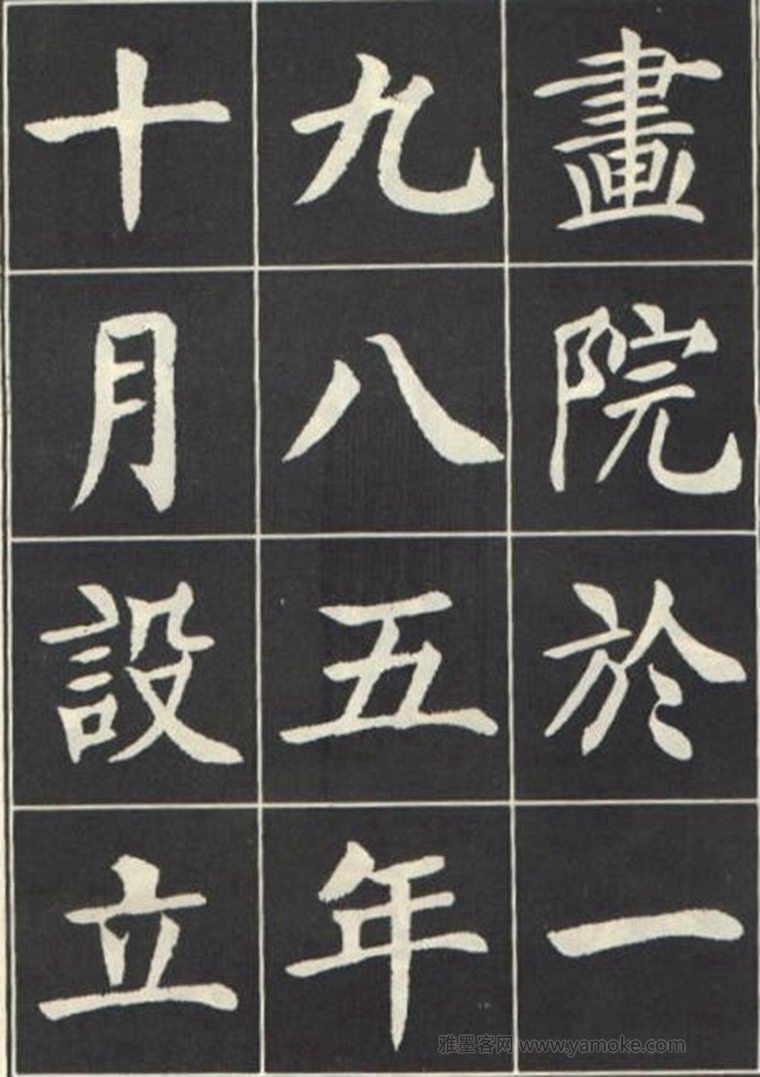 畫院於一
九八五年
十月設立
雅墨客网 www.yamoke.com